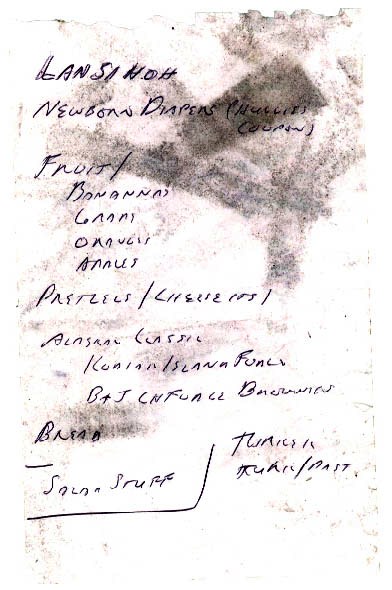 LANSINOH
NEWBORN DIAPERS (HUGGIES
COUPON)
FRUIT/
BANANNAS
GRAPES
ORANGES
APPLES
PRETZELS / CHEESE ITS /
CLASSIC
ISLAND FUDGE
B+J CH FUDGE BROWNIES
BREAD
SALAD STUFF